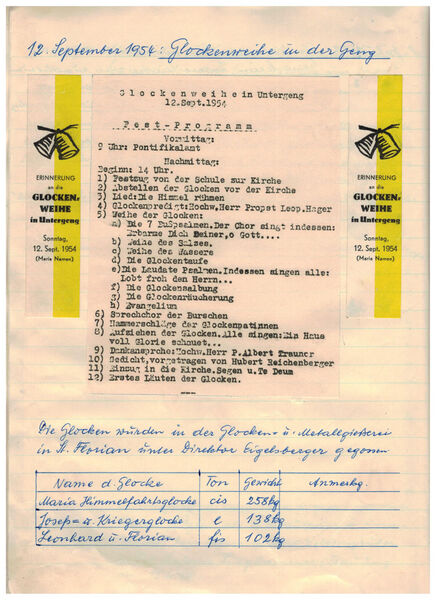 12. September 1954: Glockenweihe in der Geng
ERINNERUNG
an die
GLOCKEN-
WEIHE
in Untergeng
Sonntag,
12. Sept. 1954
(Maria Namen)
Glockenweihe in Untergeng
12.Sept.1954
Fest-Programm
Vormittag:
9 Uhr: Pontifikalamt
Nachmittag:
Beginn: 14 Uhr.
1) Festzug von der Schule zur Kirche
2) Abstellen der Glocken vor der Kirche
3) Lied:Die Himmel rühmen
4) Glockenpredigt:Hochw.Herr Propst Leop.Hager
5) Weihe der Glocken:
a) Die 7 Fußpsalmen.Der Chor singt indessen:
Erbarme Dich Meiner,o Gott....
b) Weihe des Salzes.
c) Weihe des Wassers
d) Die Glockentaufe
e)Die Laudate Psalmen.Indessen singen alle:
Lobt froh den Herrn...
f) Die Glockensalbung
g) Die Glockenräucherung
h) Evangelium
6) Sprechchor der Burschen
7) Hammerschläge der Glockenpatinnen
8) Aufziehen der Glocken.Alle singen:Ein Haus
voll Glorie schauet...
9) Dankansprche:Hochw.Herr P.Albert Trauner
10) Gedicht,vorgetragen von Hubert Reichenberger
11) Einzug in die Kirche.Segen u.Te Deum
12) Erstes Läuten der Glocken.
ERINNERUNG
an die
GLOCKEN-
WEIHE
in Untergeng
Sonntag,
12. Sept. 1954
(Maria Namen)
Die Glocken wurden in der Glocken- u. Metallgießerei
in St. Florian unter Direktor Eigelsberger gegossen
Name d. Glocke Ton Gewicht Anmerkg.
Maria Himmelfahrtsglocke cis 258kg
Josef= u. Kriegerglocke e 138kg
Leonhard u. Florian fis 102kg